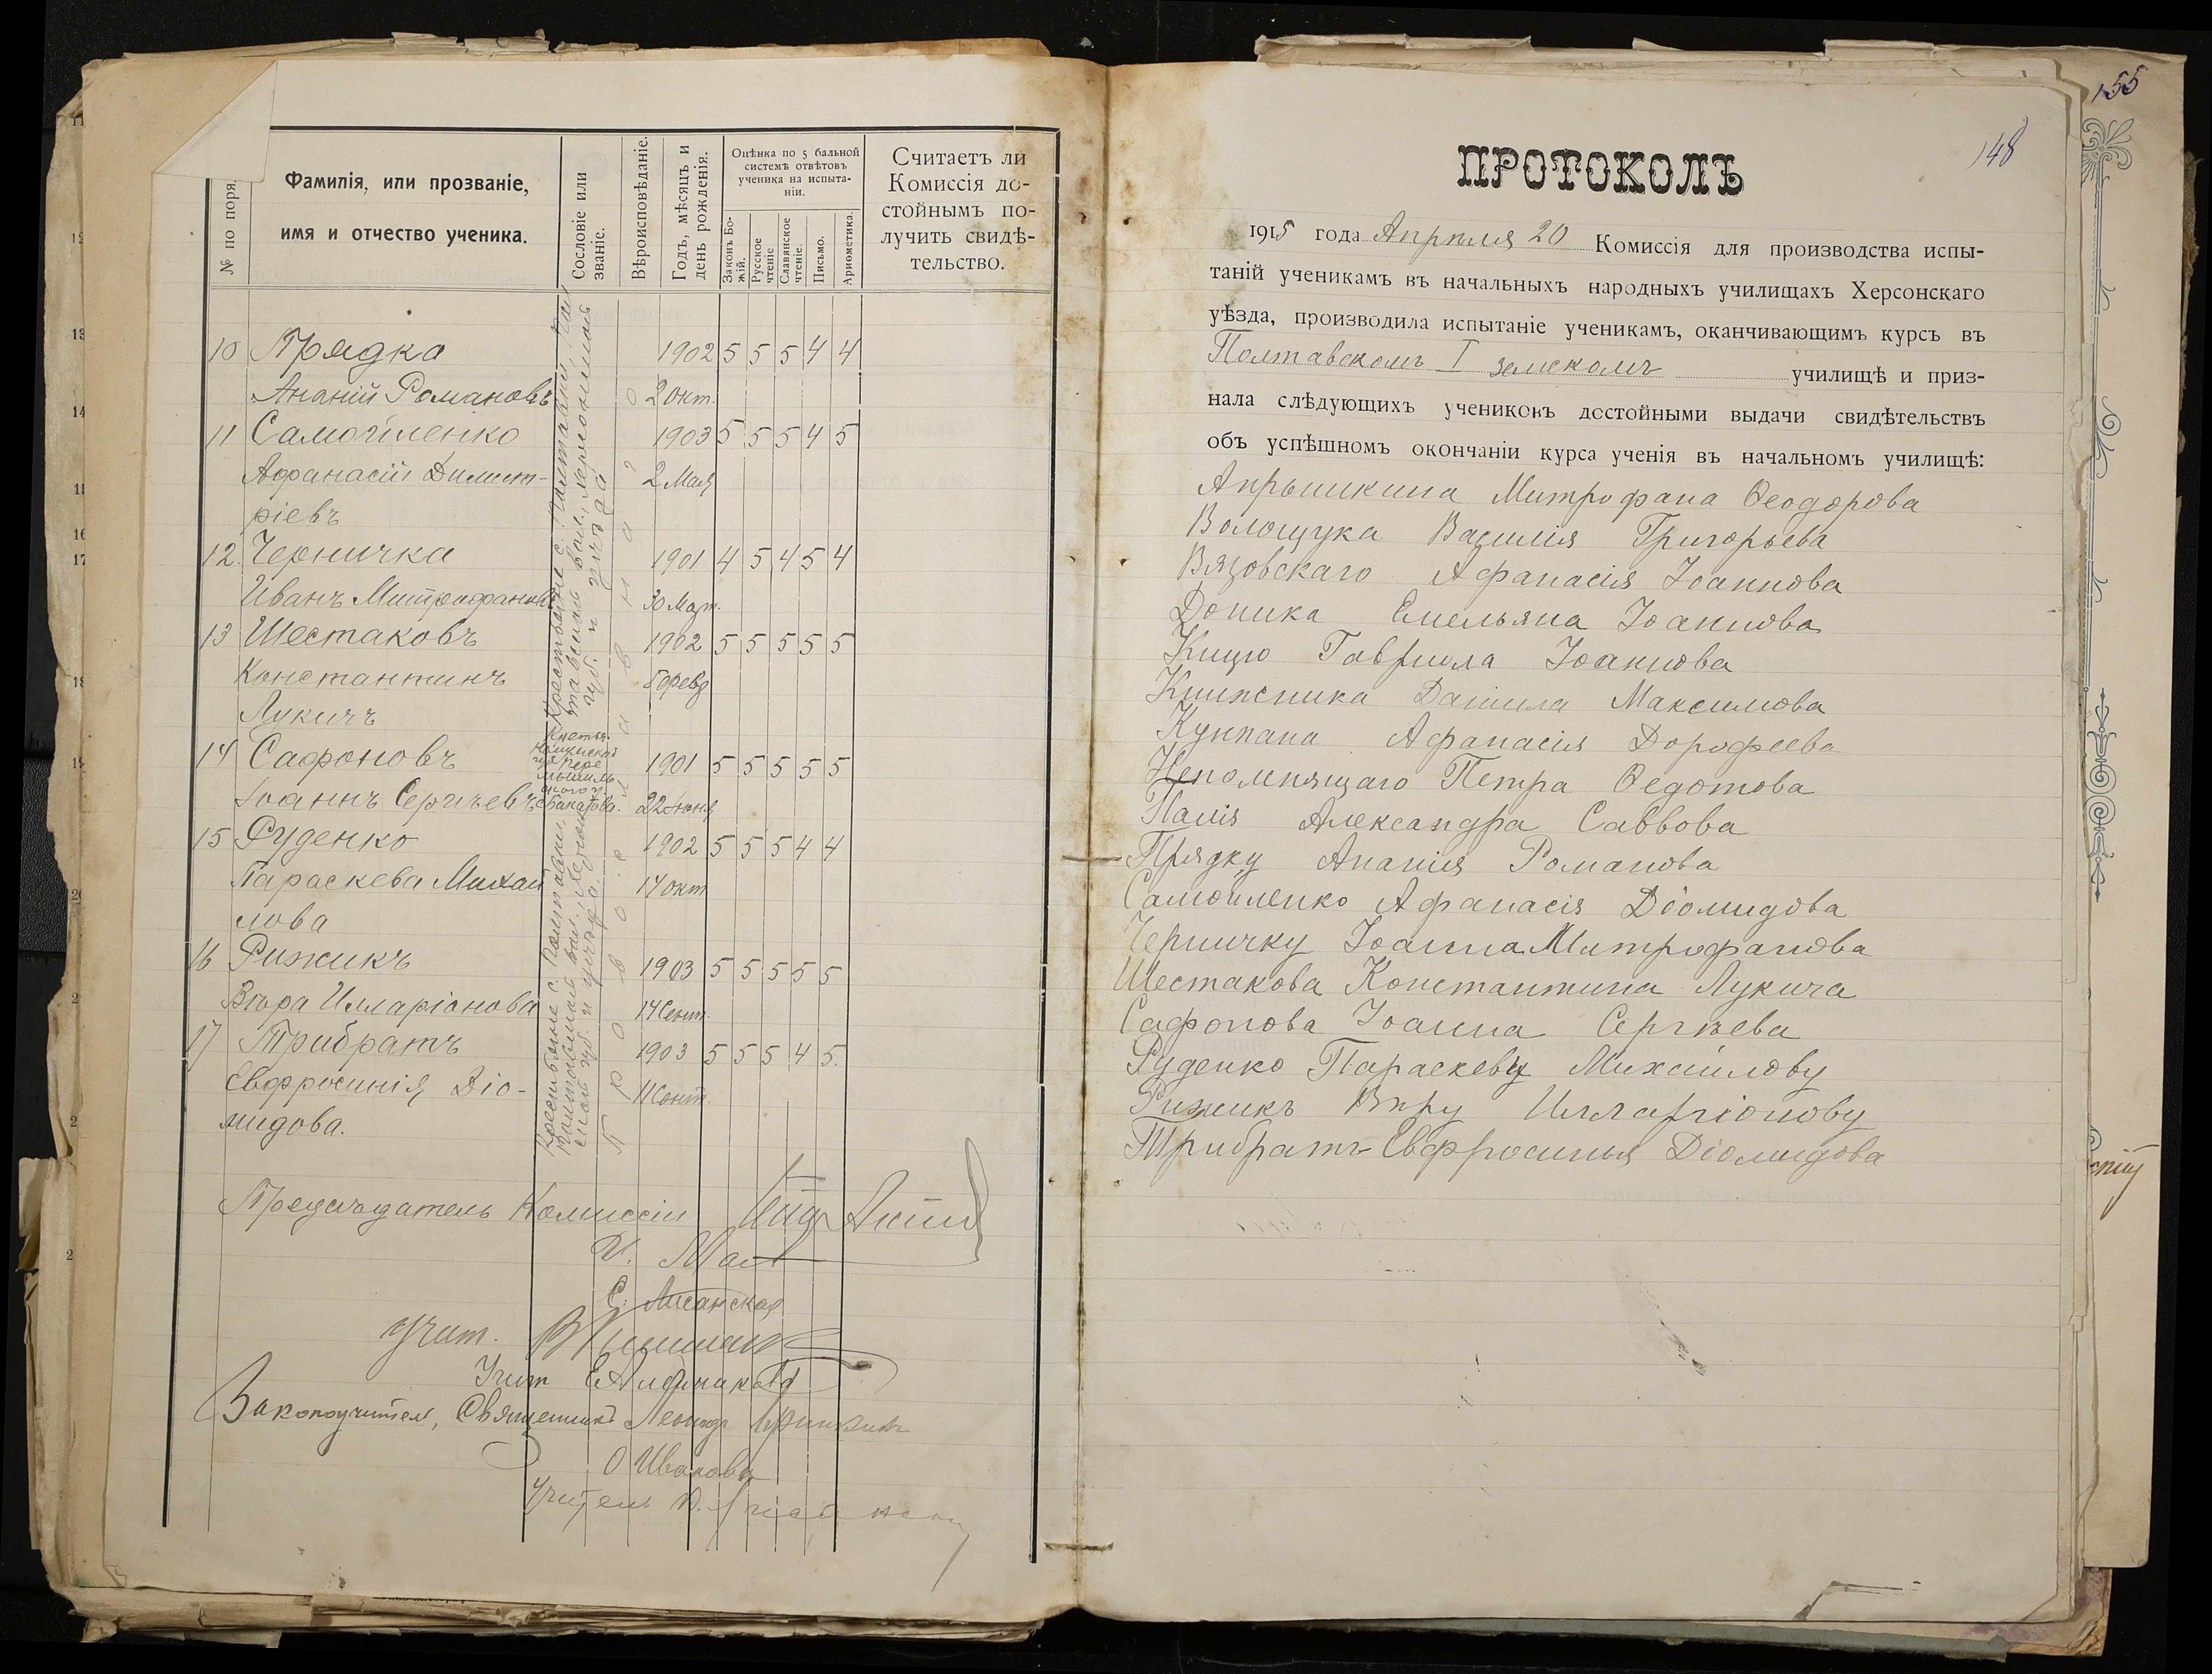 № по поряд.
Фамилія, или прозваніе,
имя и отчество ученика.
Сословіе или
званіе.
Вѣроисповѣданіе.
Годъ, мѣсяцъ и
день рожденія.
Оцѣнка по 5 бальной
системѣ отвѣтовъ
ученика на испыта-
ніи.
Законъ Бо-
жій.
Русское
чтеніе
Славянское
чтеніе.
Письмо.
Ариѳметика.
Считаетъ ли
Комиссія до-
стойнымъ по-
лучить свидѣ-
тельство.
10 Прядка 1902 5 5 5 4 4
Ананій Романовъ 2 окт.
11 Самойленко 1903 5 5 5 4 5
Афанасій Димит-
2 Мая
ріевъ
12. Черничка 1901 4 5 4 5 4
Иванъ Митрофановъ 30 Март.
13 Шестаковъ 1902 5 5 5 5 5
Константинъ
Лукичъ
14 Сафоновъ 1901 5 5 5 5 5
Іоаннъ Сергѣевъ 22 Іюня
15 Руденко 1902 5 5 5 4 4
Параскева Михай 14 окт
лова
16 Рижикъ 1903 5 5 5 5 5
Вѣра Илларіонова 14 Сент.
17 Трибратъ 1903 5 5 5 4 5.
Евфросинія Діо- 11 Сент.
мидова.
Православнаго
Предсѣдатель Комиссіи
С. Лисанская
Учит.
Учит
Законоучитель, Священникъ Леонидъ
О Иванова
Учитель
155
148
ПРОТОКОЛЪ
1915 года Апрѣля 20 Комиссія для производства испы-
таній ученикамъ въ начальныхъ народныхъ училищахъ Херсонскаго
уѣзда, производила испытаніе ученикамъ, оканчивающимъ курсъ въ
Полтавскомъ I земскомъ училищѣ и приз-
нала слѣдующихъ учениковъ достойными выдачи свидѣтельствъ
объ успѣшномъ окончаніи курса ученія въ начальномъ училищѣ:
Апрышкина Митрофана Ѳеодорова
Волощука Василія Григорьева
Вязовскаго Афанасія Іоаннова
Доника Емельяна Іоаннова
Кицю Гавріила Іоаннова
Книжника Даніила Максимова
Куппана Афанасія Дорофеева
Непомнящаго Петра Ѳедотова
Палія Александра Саввова
Прядку Ананія Романова
Самойленко Афанасія Діомидова
Черничку Іоанна Митрофанова
Шестакова Константина Лукича
Сафонова Іоанна Сергѣева
Руденко Параскеву Михайлову
Рижикъ Вѣру Илларіонову
Трибратъ Евфросинья Діомидова